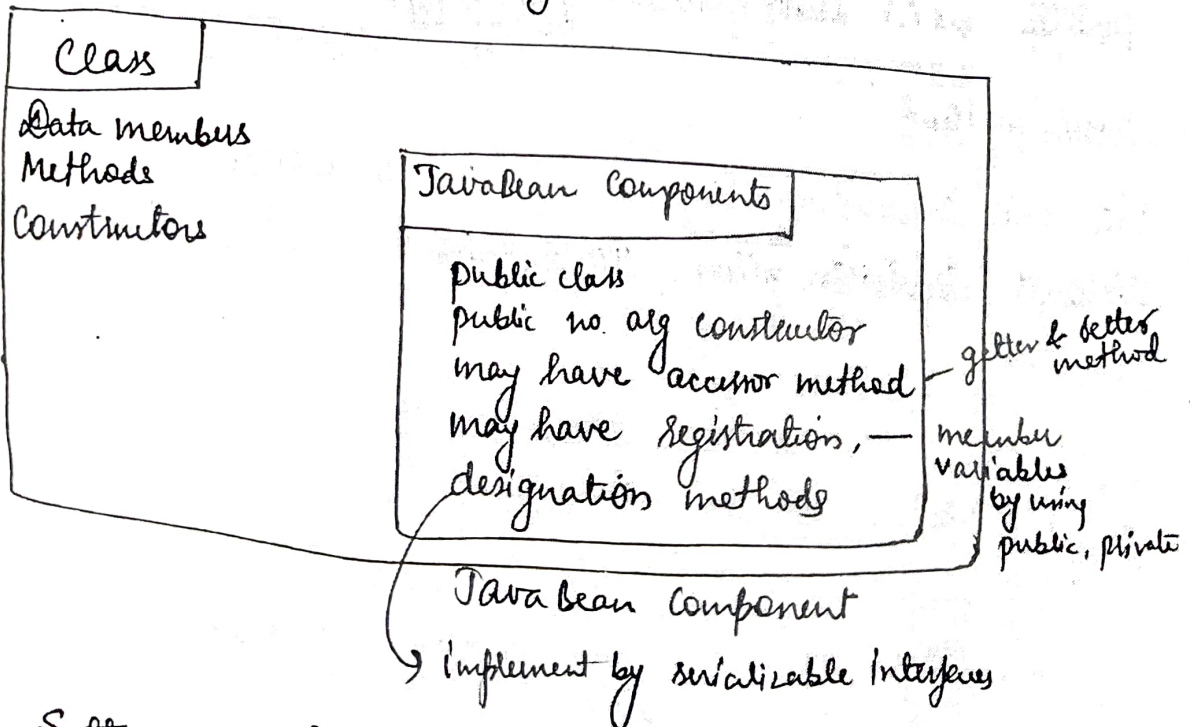 Class
Data members
Methods
Constructors
JavaBean Components
public class
public no. arg constructor
may have accessor method
getter & setter
method
may have registration,
designation methods
member
variables
by using
public, private
Java Bean Component
implement by serializable Interfaces